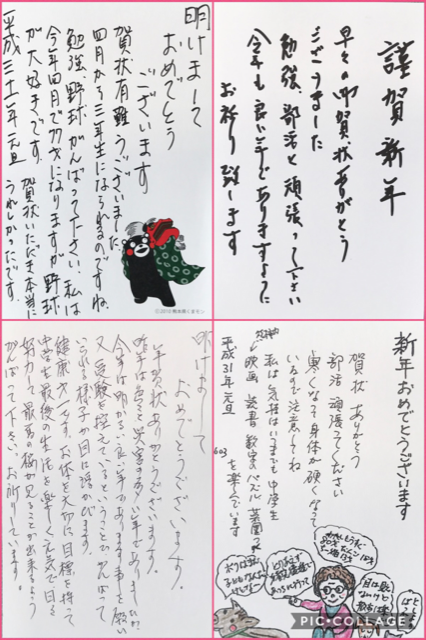 明けまして
おめでとう
ございます
賀状有難うございました。
四月から三年生になられるのですね、
勉強、野球がんばって下さい、私は
今年四月で
になりますが野球
が大好きです。賀状いただき本当に
うれしかったです。
平成三十一年元旦
©2010熊本県くまモン
謹賀新年
早々の御賀状ありがとう
ございました
勉強、部活と頑張って下さい
今年も良い年でありますように
お祈り致します
明けまして
おめでとうございます。
年賀状ありがとうございます。
昨年は色々と災害の多い年でありましたが、
今年は明るい良い年であります事を願い
又、受験を控えているということでがんばって
いられる様子が目に浮かびます。
健康が
お体を大切に目標を持って
中学生最後の生活を楽しく元気で日々
努力して最高の
が見ることが出来るよう
がんばって下さい。お祈りしています。
新年おめでとうございます
賀状 ありがとう
部活 頑張ってください
寒くなって身体が硬くなって
いるので注意してね
私は気持はいまでも中学生
映画 読書 数字のパズル 菜園
を楽しんでいます
平成31年元旦
PIC•COLLAGE